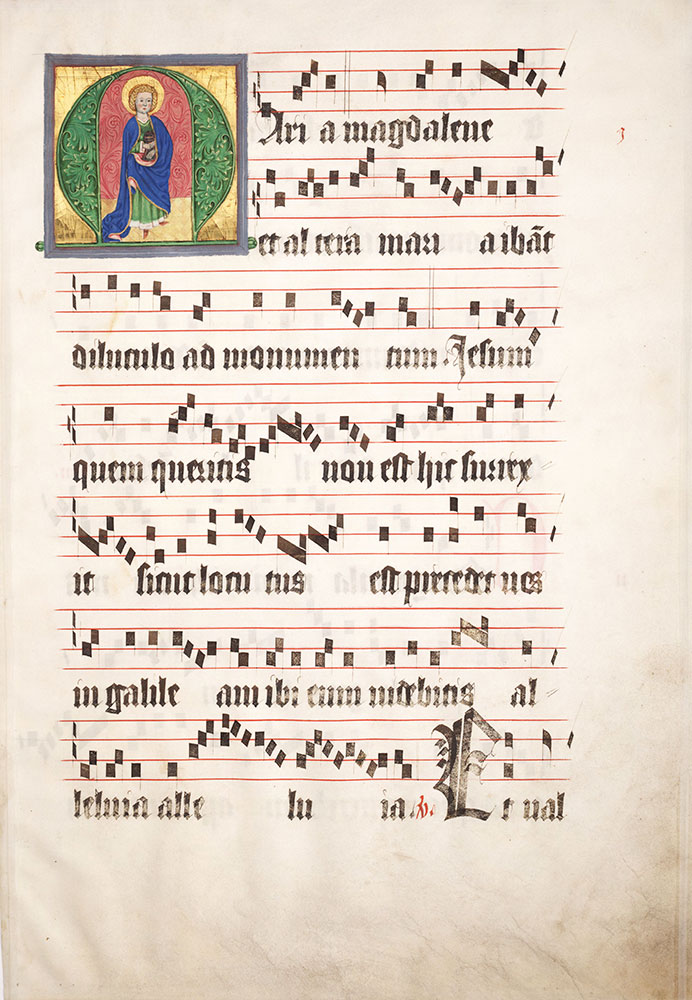 MAri a magdalene
et al tera mari a ibāt
diluculo ad monumen tum. Jesum
quem queritis non est hic surrex
it sicut locu tus est precedet uos
in galile am ibi eum uidebitis al
leluia alle lu ia. ℣. Et ual